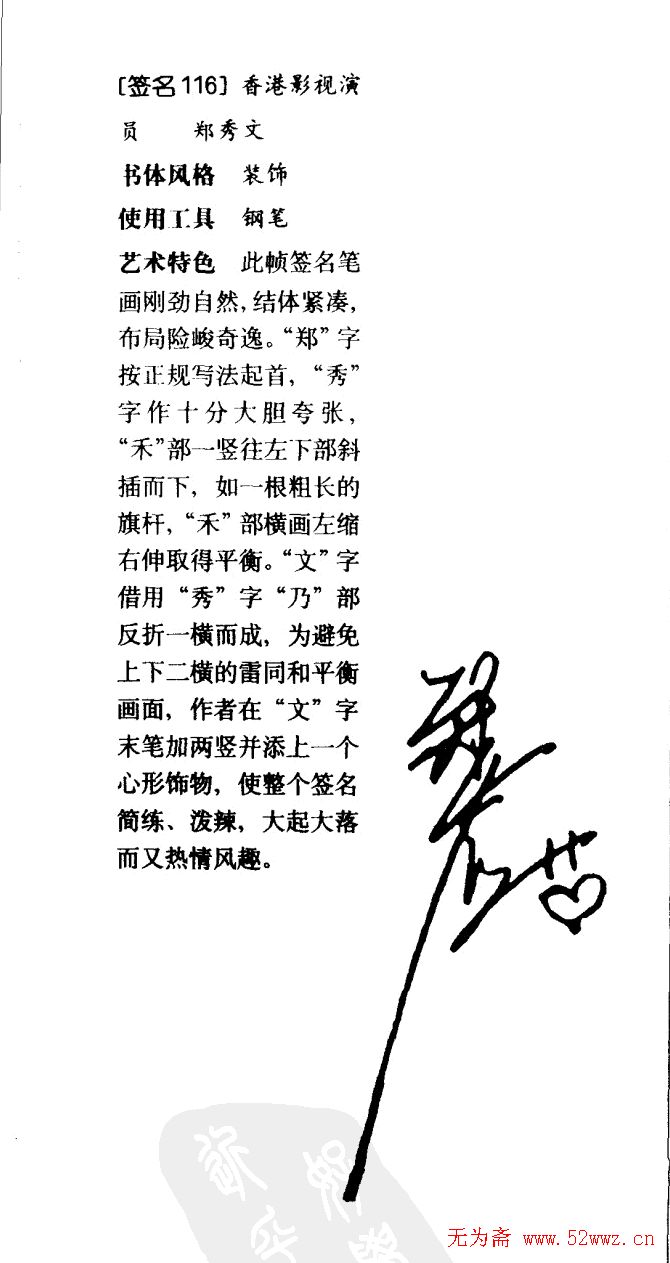 [签名116] 香港影视演
员 郑秀文
书体风格 装饰
使用工具 钢笔
艺术特色 此帧签名笔
画刚劲自然,结体紧凑,
布局险峻奇逸。“郑”字
按正规写法起首,“秀”
字作十分大胆夸张,
“禾”部一竖往左下部斜
插而下,如一根粗长的
旗杆,“禾”部横画左缩
右伸取得平衡。“文”字
借用“秀”字“乃”部
反折一横而成,为避免
上下二横的雷同和平衡
画面,作者在“文”字
末笔加两竖并添上一个
心形饰物,使整个签名
简练、泼辣,大起大落
而又热情风趣。
郑秀文
无为斋 www.52wwz.cn